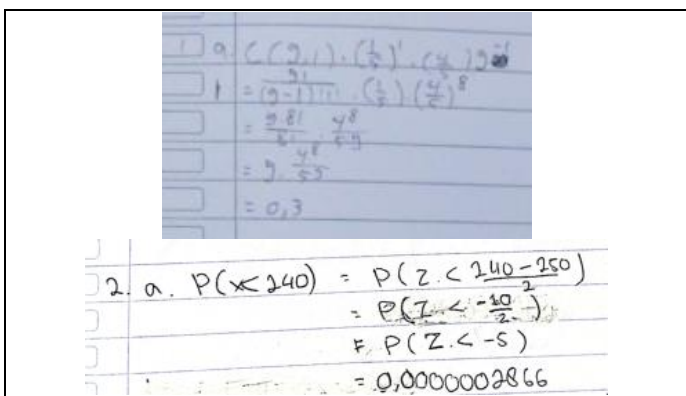 1 a. C(9,1) · (1/5)¹ · (4/5)9-1
= 9!/(9-1)!1! · (1/5) · (4/5)⁸
= 9.8!/8! · 4⁸/5⁹
= 9 · 4⁸/5⁹
= 0,3
2. a. P(x<240) = P(Z < 240-250/2)
= P(Z < -10/2)
= P(Z < -5)
= 0,0000002866